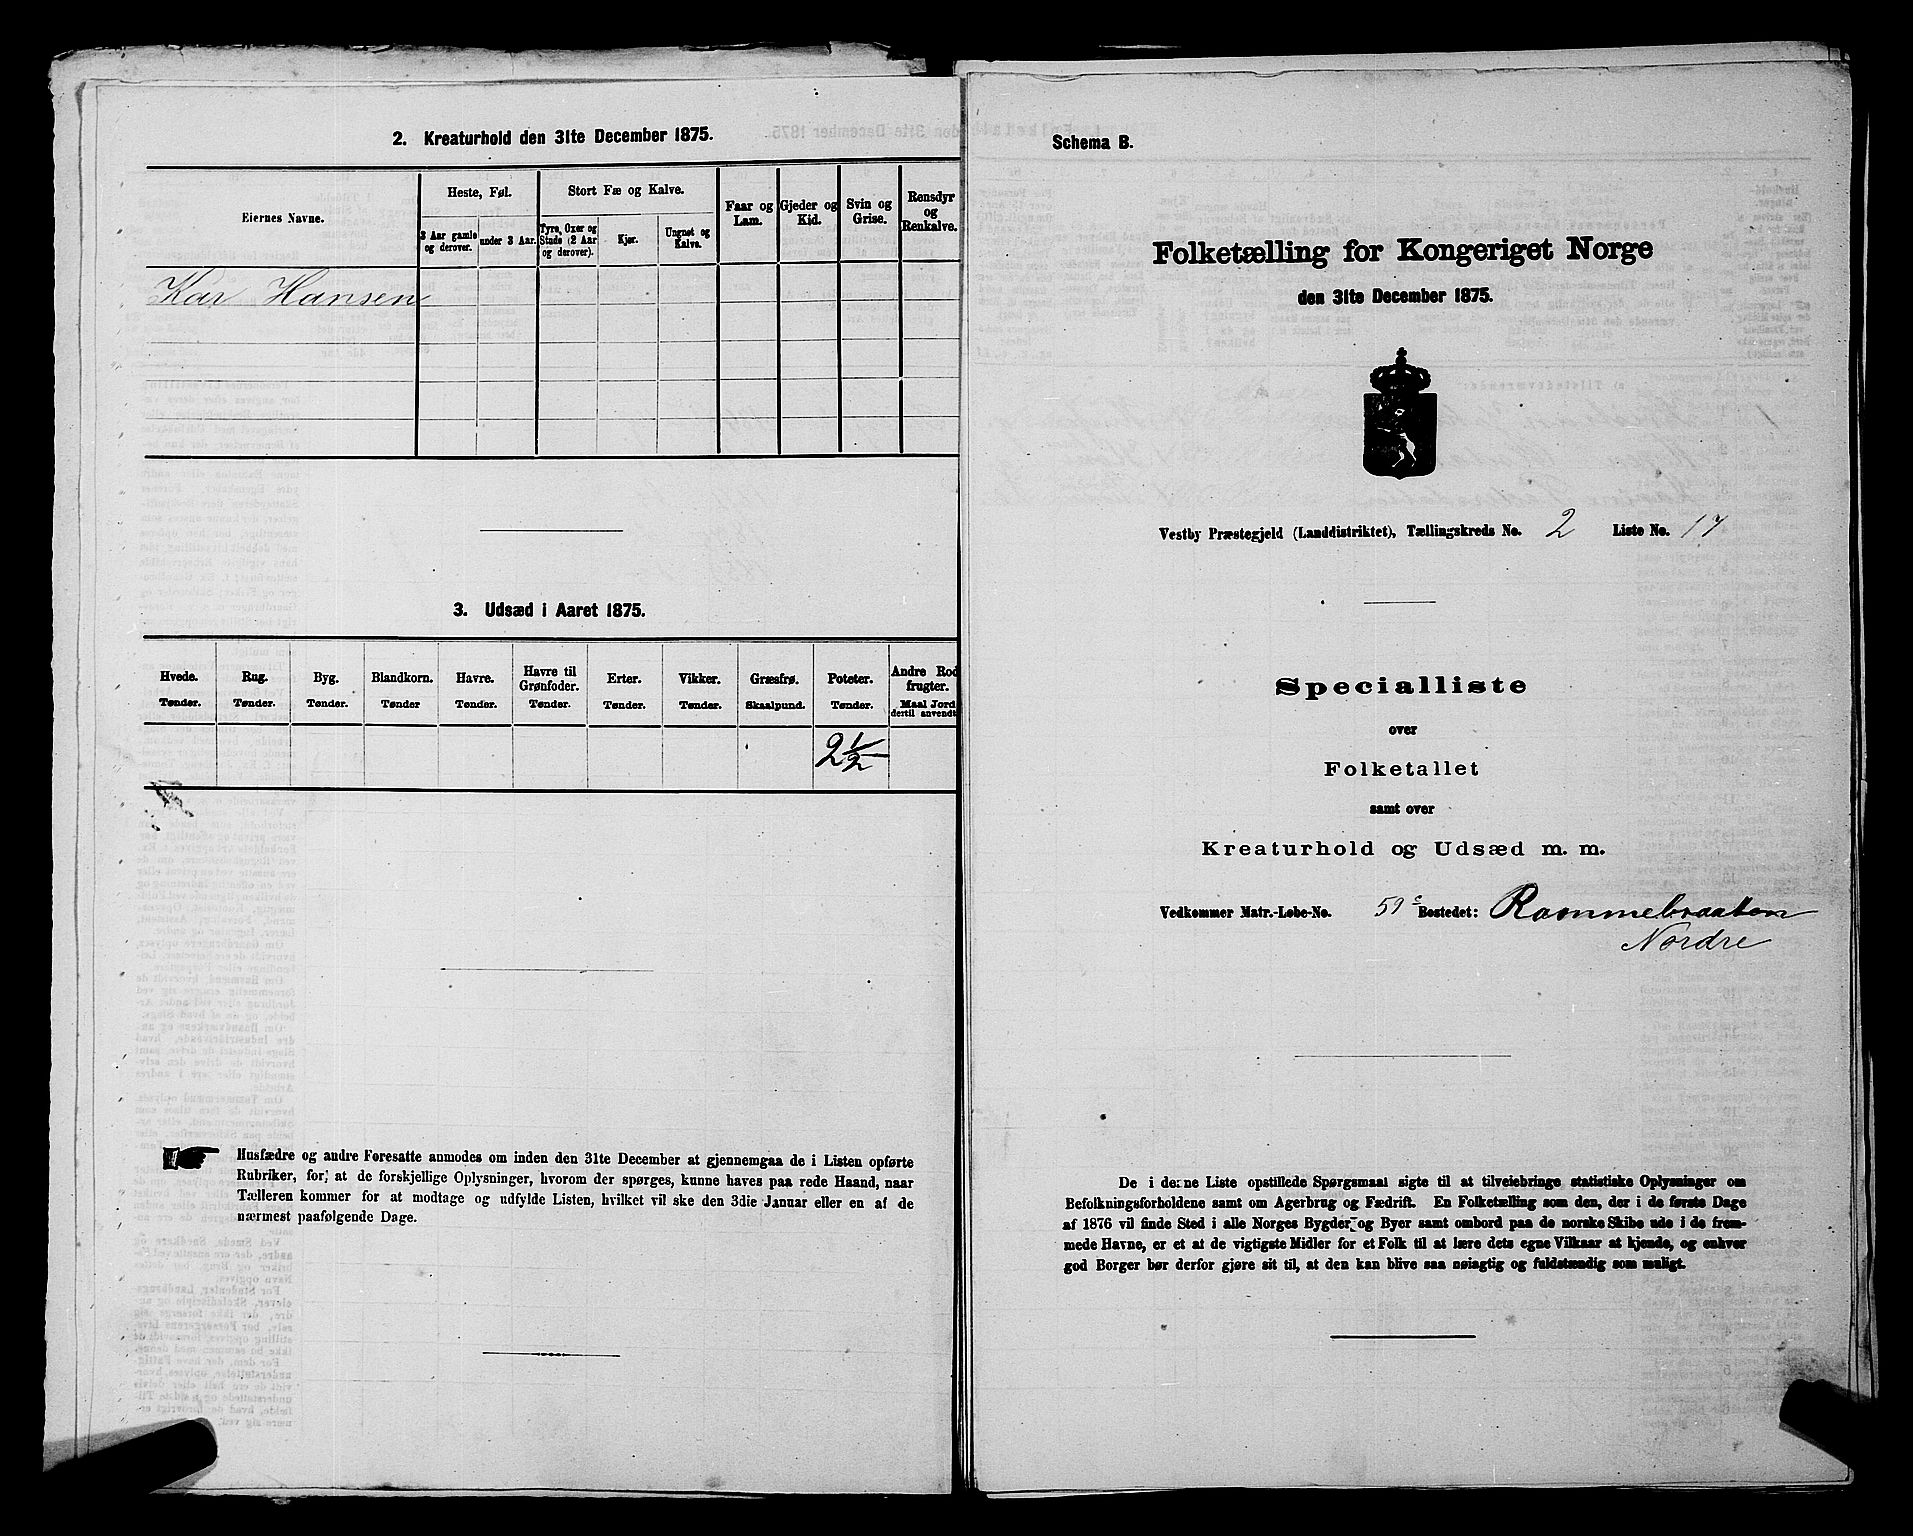 2. Kreaturhold den 31te December 1875.
Eiernes Navne.
Heste, Føl.
3 Aar gamle og derover.
under 3 Aar.
Stort Fæ og Kalve.
Tyre, Oxer og Stude (2 Aar og derover).
Kjør.
Ungnøt og Kalve.
Faar og Lam.
Gjeder og Kid.
Svin og Grise.
Rensdyr og Renkalve.
Kar Hansen
3. Udsæd i Aaret 1875.
Hvede. Tønder.
Rug. Tønder.
Byg. Tønder.
Blandkorn. Tønder
Havre. Tønder.
Havre til Grønfoder. Tønder.
Erter. Tønder.
Vikker. Tønder.
Græsfrø. Skaalpund.
Poteter. Tønder.
Andre Rodfrugter. Maal Jord dertil anvendt
2 1/2
Husfædre og andre Foresatte anmodes om inden den 31te December at gjennemgaa de i Listen opførte
Rubriker, for at de forskjellige Oplysninger, hvorom der spørges, kunne haves paa rede Haand, naar
Tælleren kommer for at modtage og udfylde Listen, hvilket vil ske den 3die Januar eller en af de
nærmest paafølgende Dage.
Schema B.
Folketælling for Kongeriget Norge
den 31te December 1875.
Vestby Præstegjeld (Landdistriktet), Tællingskreds No. 2 Liste No. 17
Specialliste
over
Folketallet
samt over
Kreaturhold og Udsæd m. m.
Vedkommer Matr.-Løbe-No. 59 c Bostedet: Rammebraaten
Nordre
De i denne Liste opstillede Spørgsmaal sigte til at tilveiebringe statistiske Oplysninger om
Befolkningsforholdene samt om Agerbrug og Fædrift. En Folketælling som den, der i de første Dage
af 1876 vil finde Sted i alle Norges Bygder og Byer samt ombord paa de norske Skibe ude i de frem-
mede Havne, er et at de vigtigste Midler for et Folk til at lære dets egne Vilkaar at kjende, og enhver
god Borger bør derfor gjøre sit til, at den kan blive saa nøiagtig og fuldstændig som muligt.